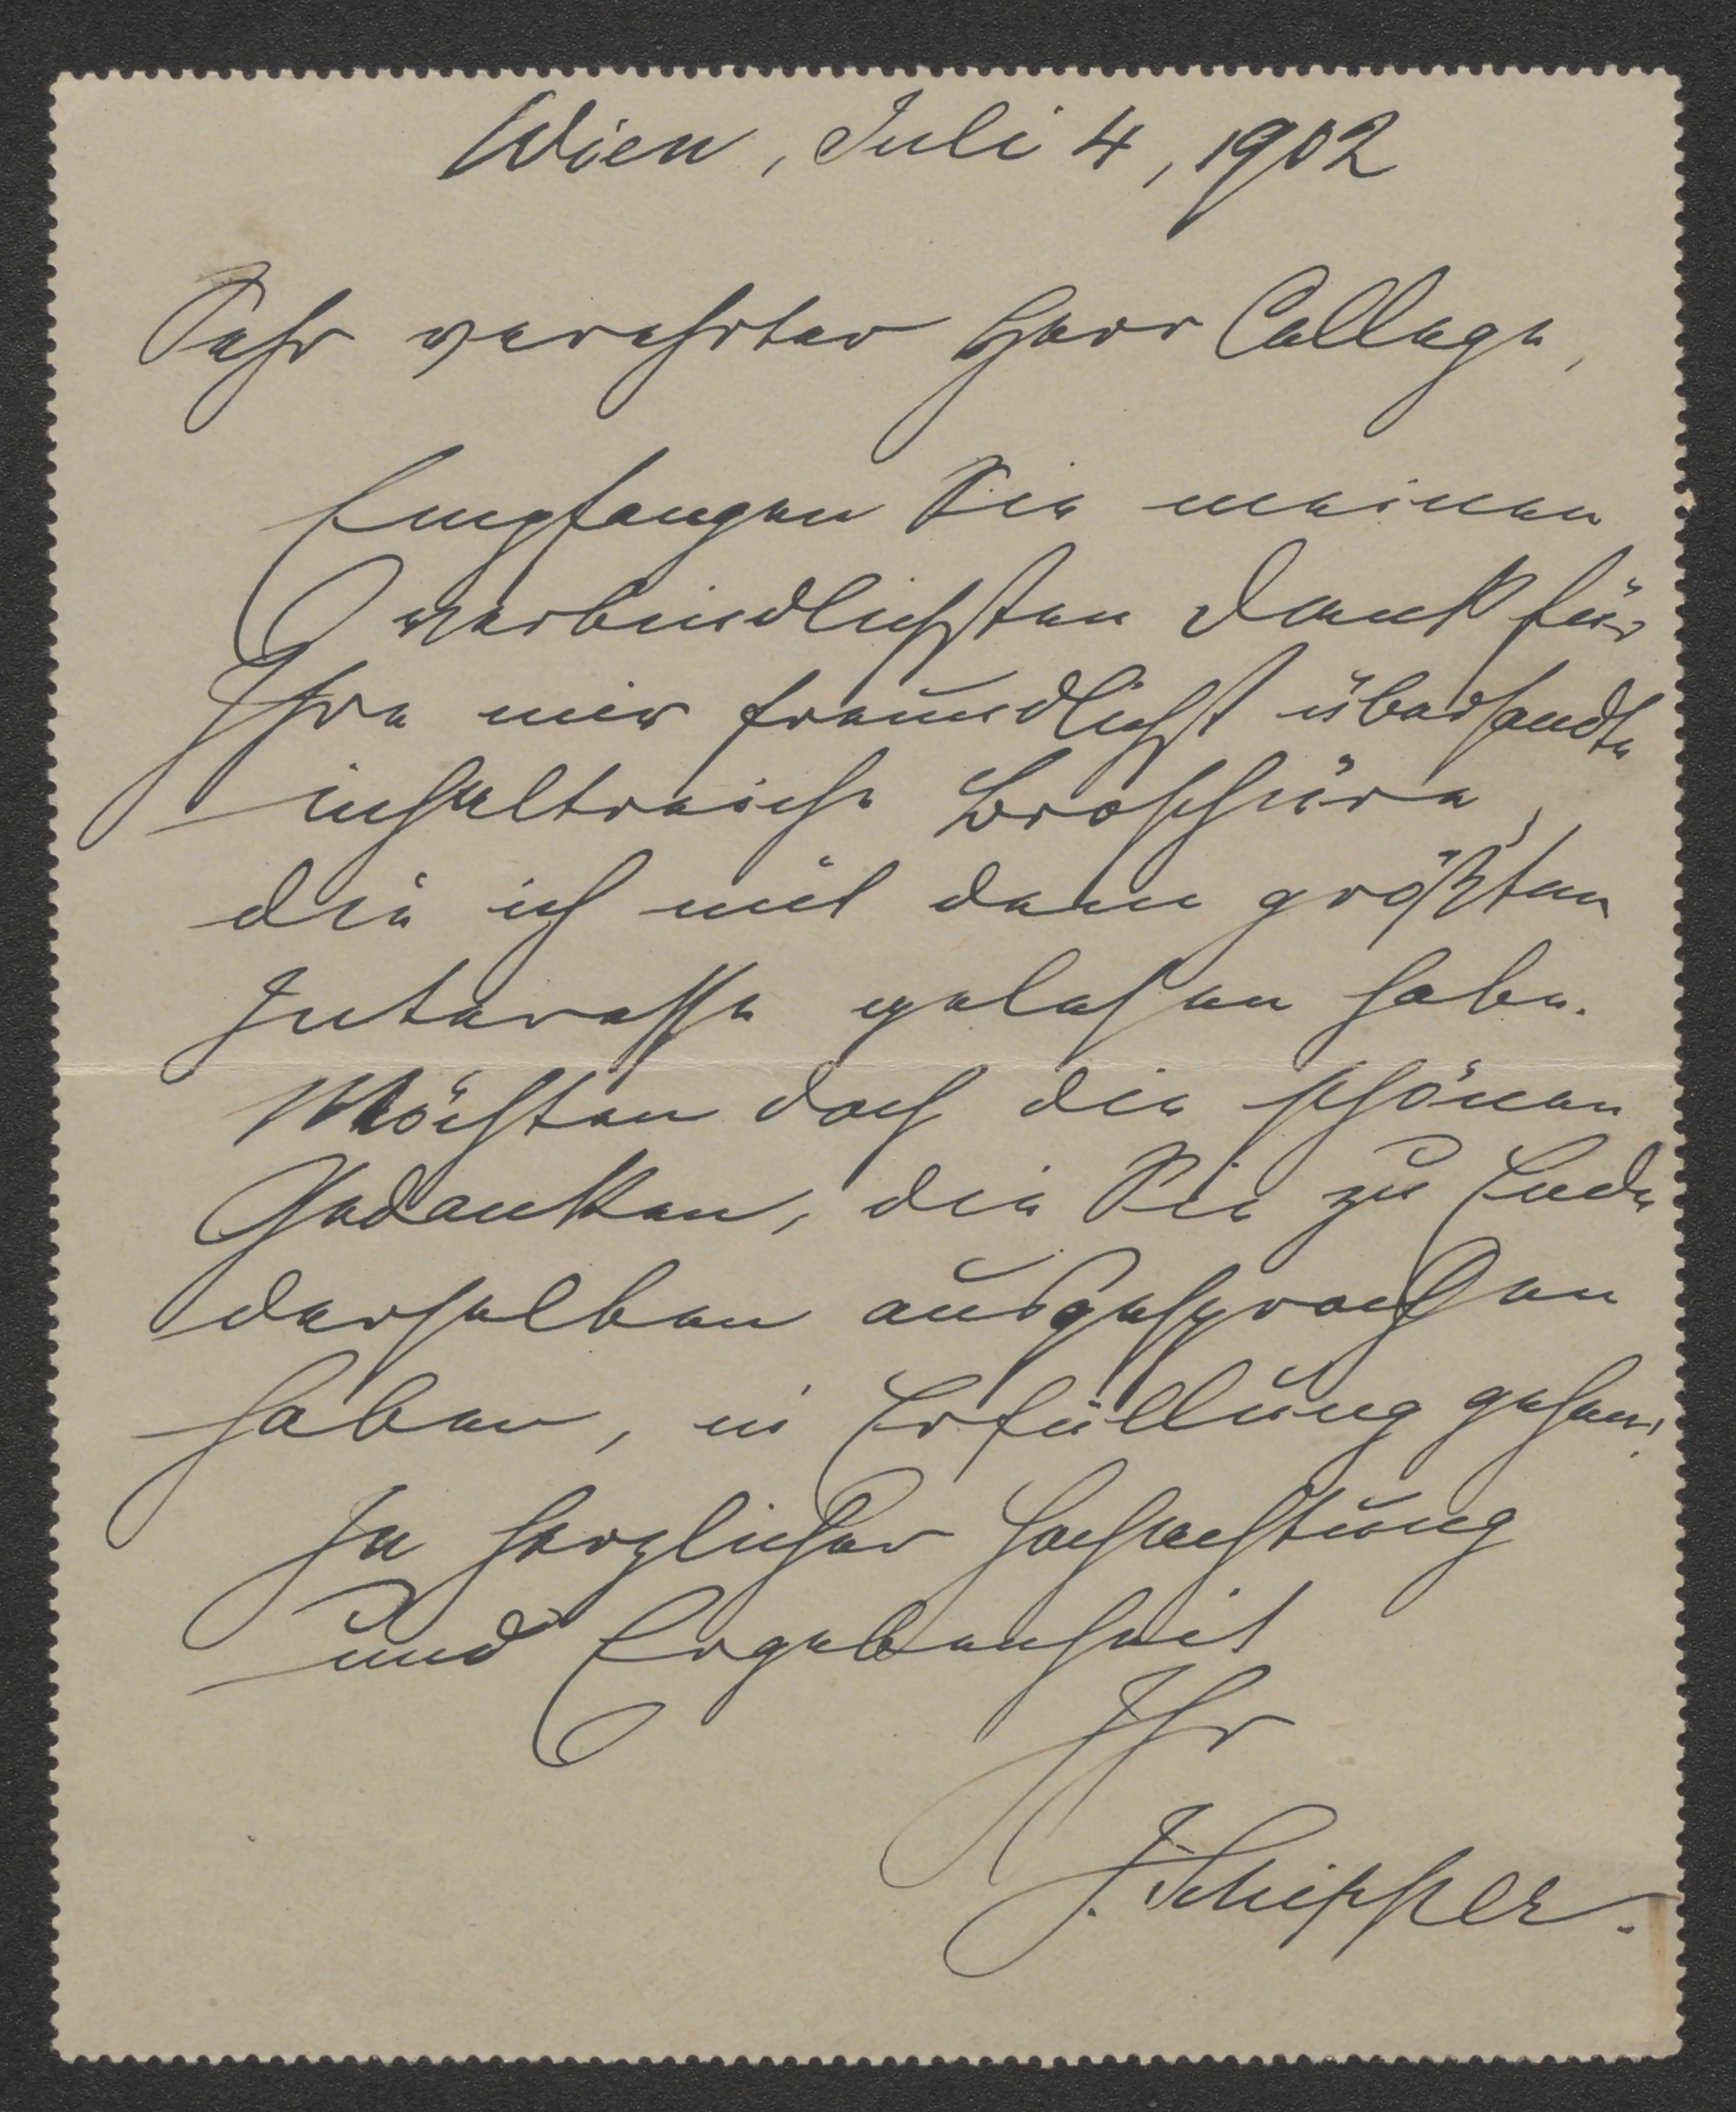 Wien, Juli 4, 1902
Sehr verehrter Herr College,
Empfangen Sie meinen
verbindlichsten Dank für
Ihre mir freundlichst übersandte
inhaltreiche Broschüre,
die ich mit dem größten
Interesse gelesen habe.
Möchten doch die schönen
Gedanken, die Sie zu Ende
derselben ausgesprochen
haben, in Erfüllung gehen!
In herzlicher Hochachtung
und Ergebenheit
Ihr
J. Schipper.